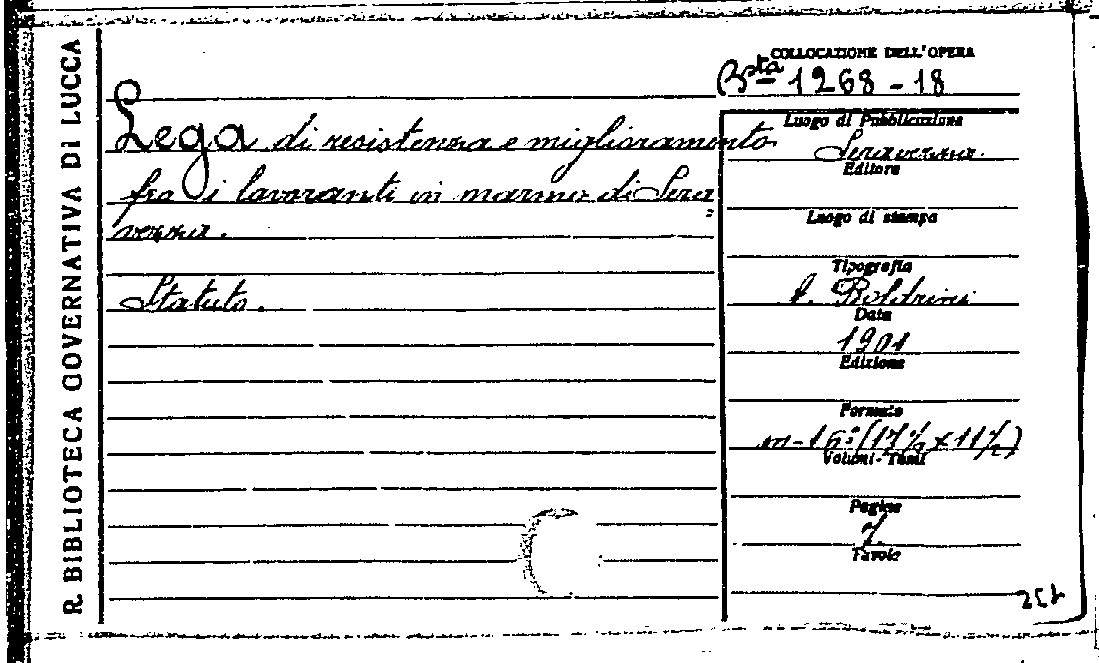 R. BIBLIOTECA GOVERNATIVA DI LUCCA
COLLOCAZIONE DELL'OPERA
Bsta 1268 - 18
Lega di resistenza e miglioramento
fra i lavoranti in marmo di Sera=
vezza.
Statuto.
Luogo di Pubblicazione
Seravezza.
Editore
Luogo di stampa
Tipografia
Boldrini
Data
1901
Edizione
Formato
m-16º (17½ x 11½)
Volumi - Tomi
Pagine
7.
Tavole